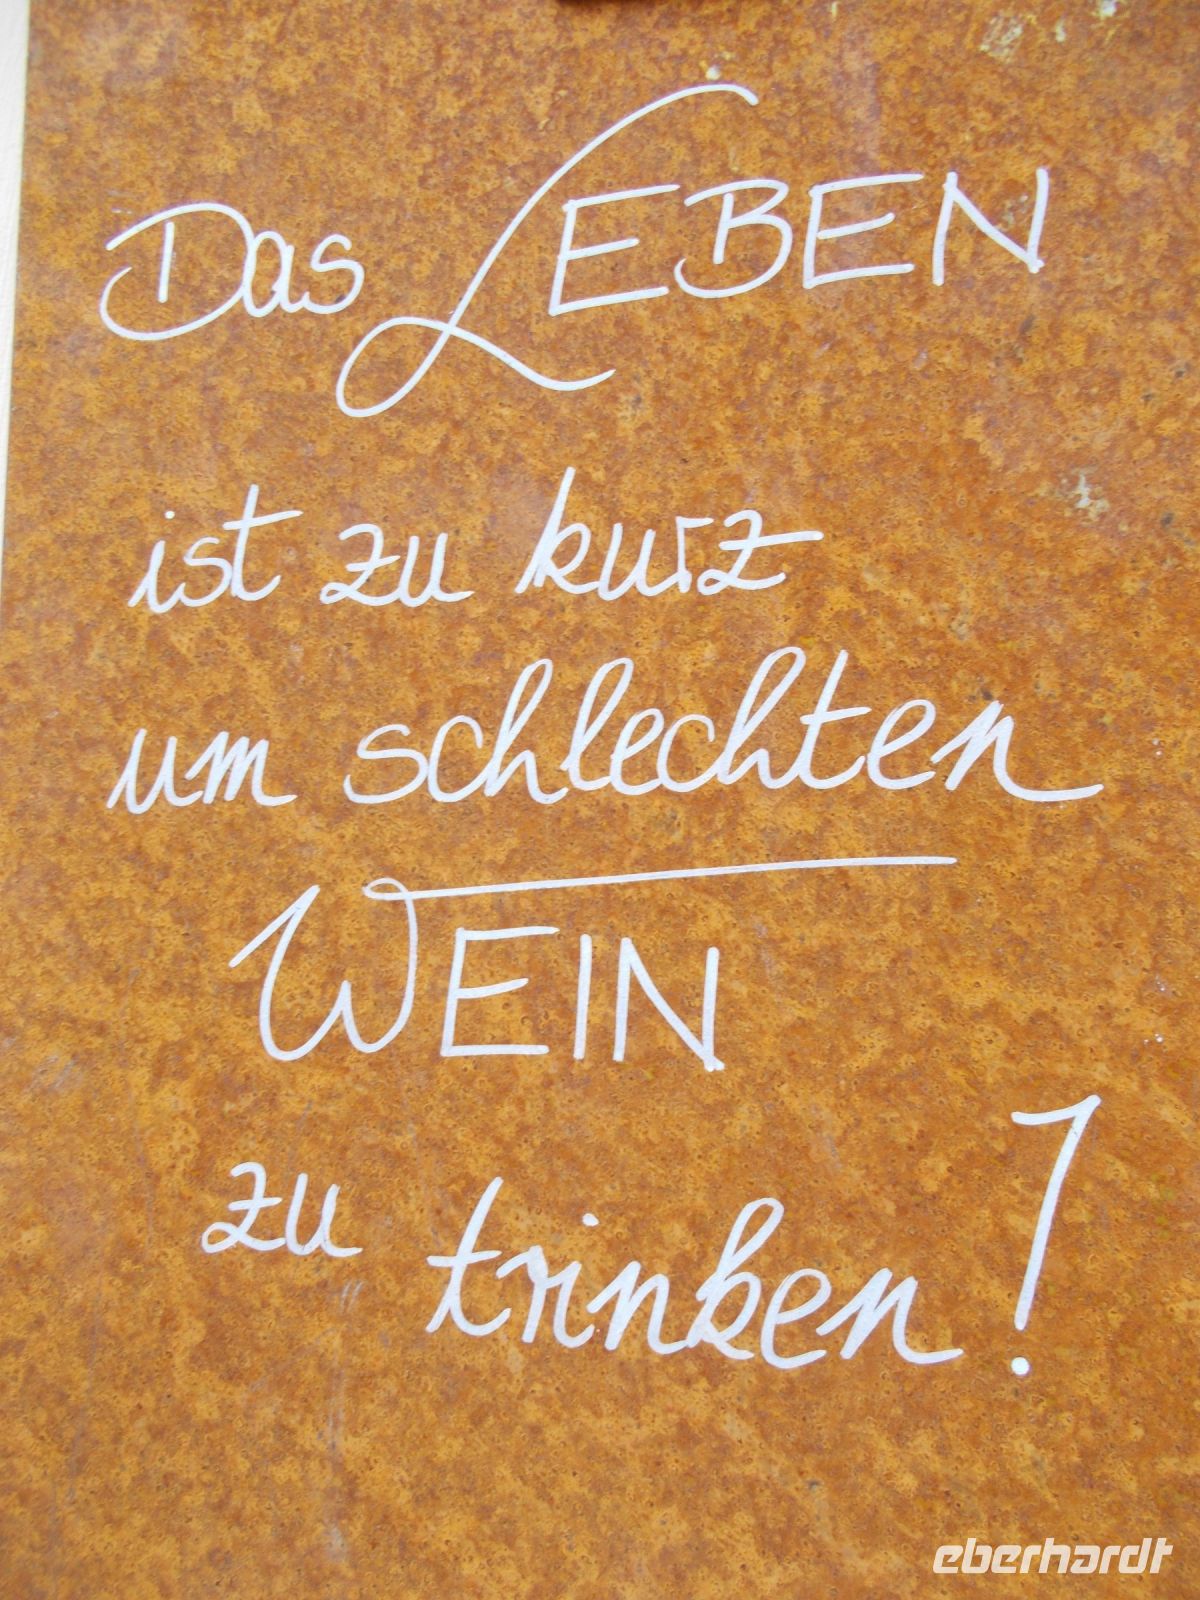 Das LEBEN
ist zu kurz
um schlechten
WEIN
zu trinken!
eberhardt